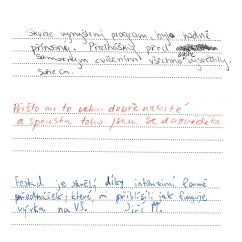 Skvěle vymyšlený program, bylo hodně
přínosný. Přednášky před
samotným cvičením všechno vysvětlily.
Přišlo mi to velmi dobře
a spoustu toho jsem se dozvěděla.
Festival je skvělý díky intenzivní formě
přednášek, které m přiblížili jak funguje
výuka na VŠ. Jiří M.